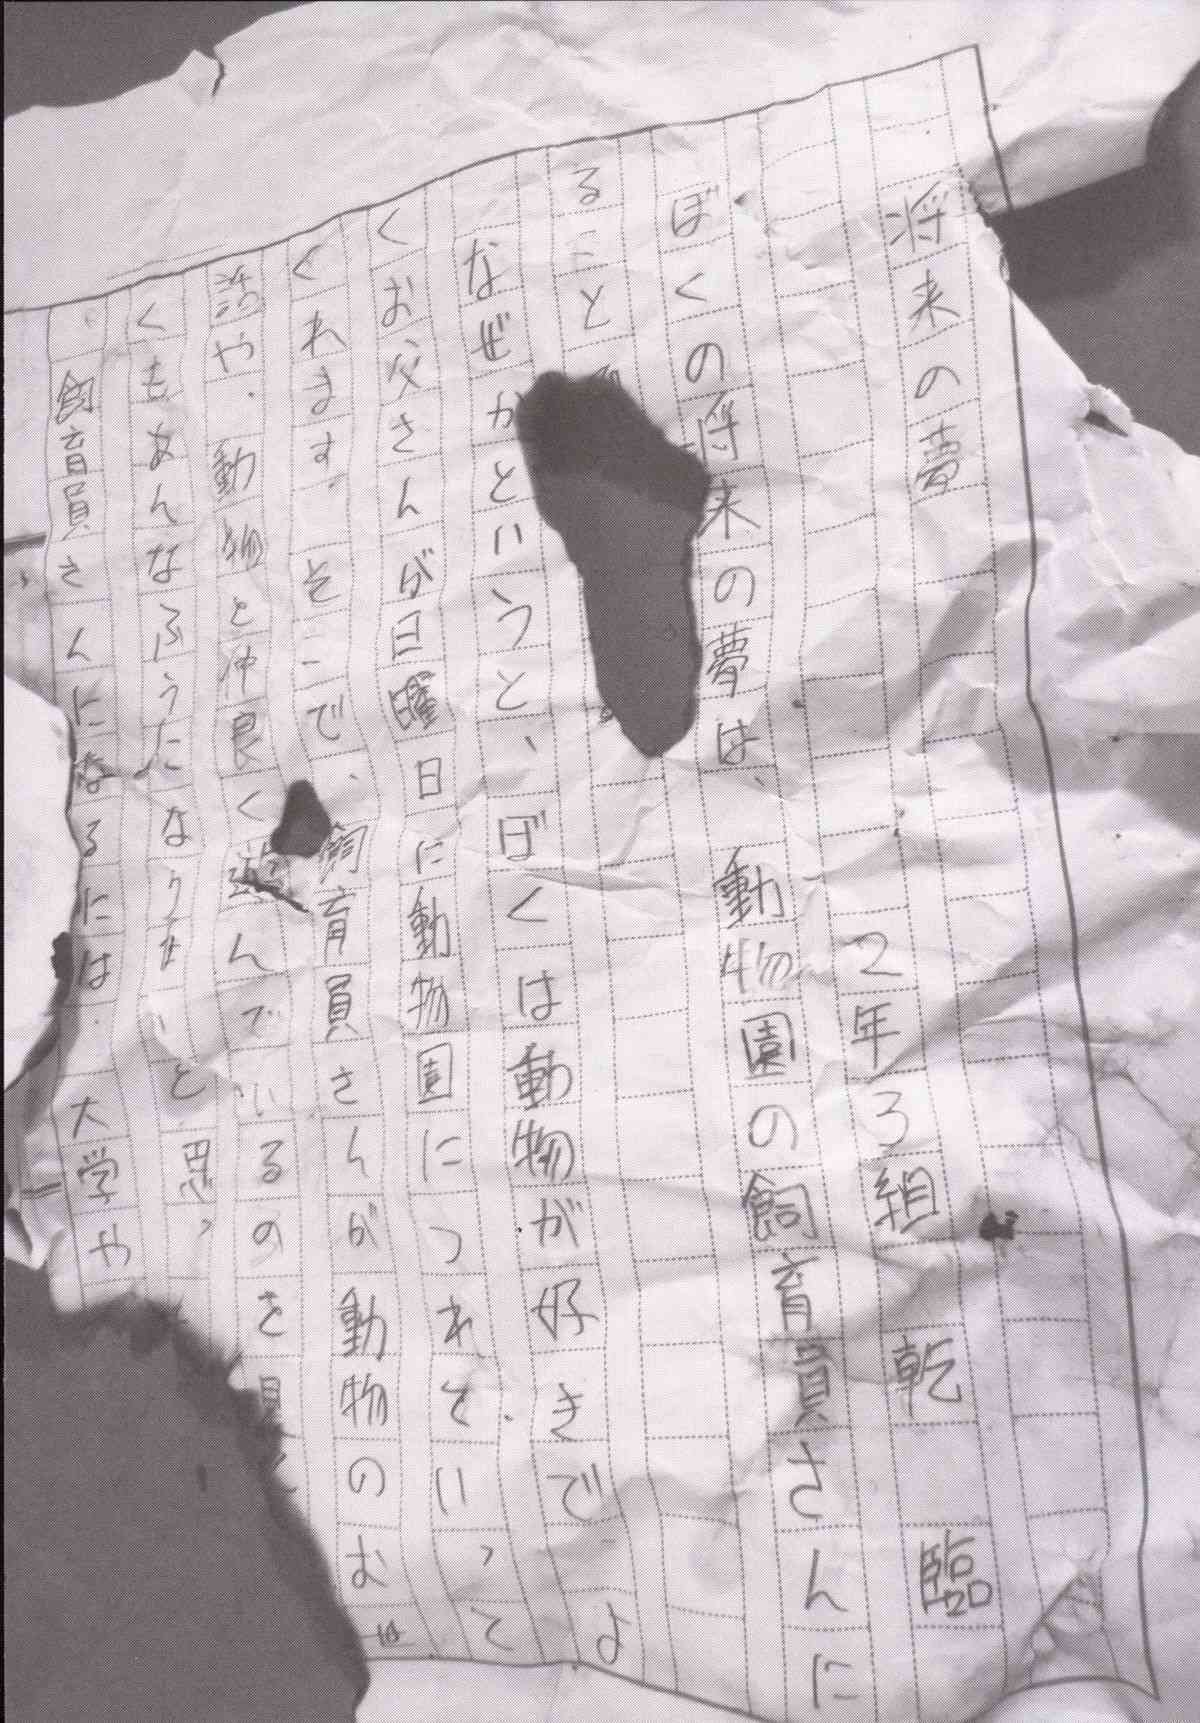 将来の夢
2年3組 乾 臨
ぼくの将来の夢は、動物園の飼育員さんに
ること
なぜかというと、ぼくは動物が好きで、よ
くお父さんが日曜日に動物園につれていって
くれます。そこで、飼育員さんが動物のお
話や、動物と仲良く遊んでいるのを見
くもあんなふうになりたいと思っ
、飼育員さんになるには、大学や